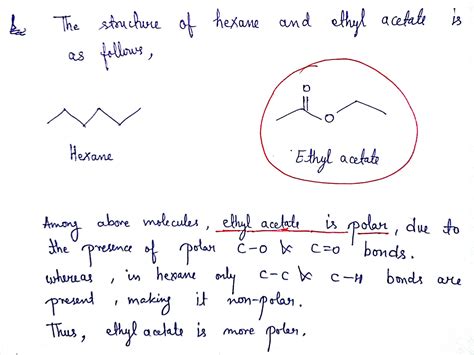 The structure of hexane and ethyl acetate is
as follows,
O
O
Hexane
Ethyl acetate
Among above molecules, ethyl acetate is polar, due to
the presence of polar C-O & C=O bonds.
whereas, in hexane only C-C & C-H bonds are
present, making it non-polar.
Thus, ethyl acetate is more polar.